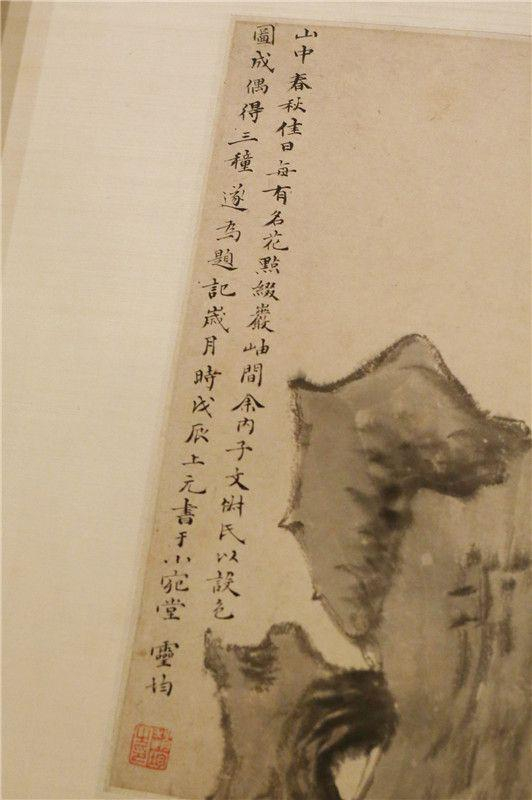 山中春秋佳日每有名花點綴巖岫間余內子文俶氏以設色
圖成偶得三種遂為題記歲月時戊辰上元書于小宛堂 靈均